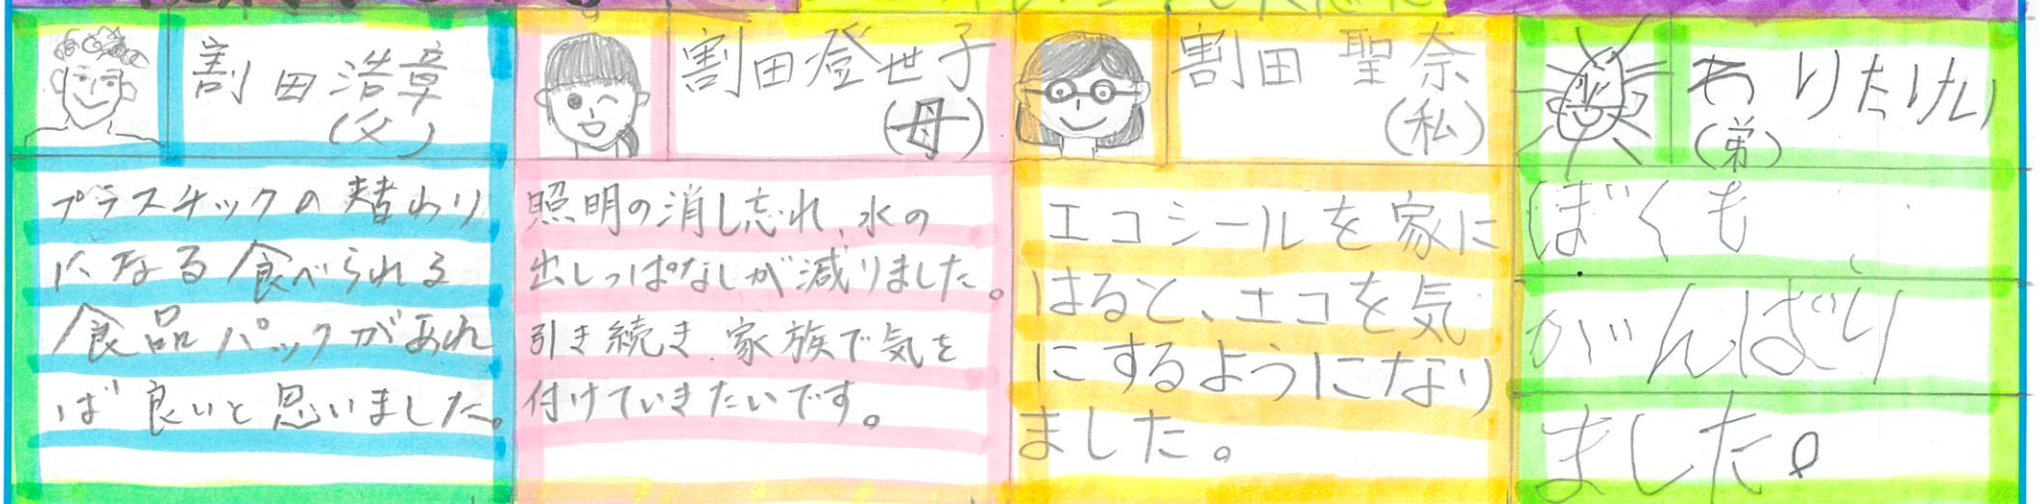 割田浩章
(父)
プラスチックの替わり
になる食べられる
食品パックがあれ
ば良いと思いました。
割田登世子
(母)
照明の消し忘れ、水の
出しっぱなしが減りました。
引き続き、家族で気を
付けていきたいです。
割田聖奈
(私)
エコシールを家に
はると、エコを気
にするようになり
ました。
わりたけい
(弟)
ぼくも
がんばり
ました。